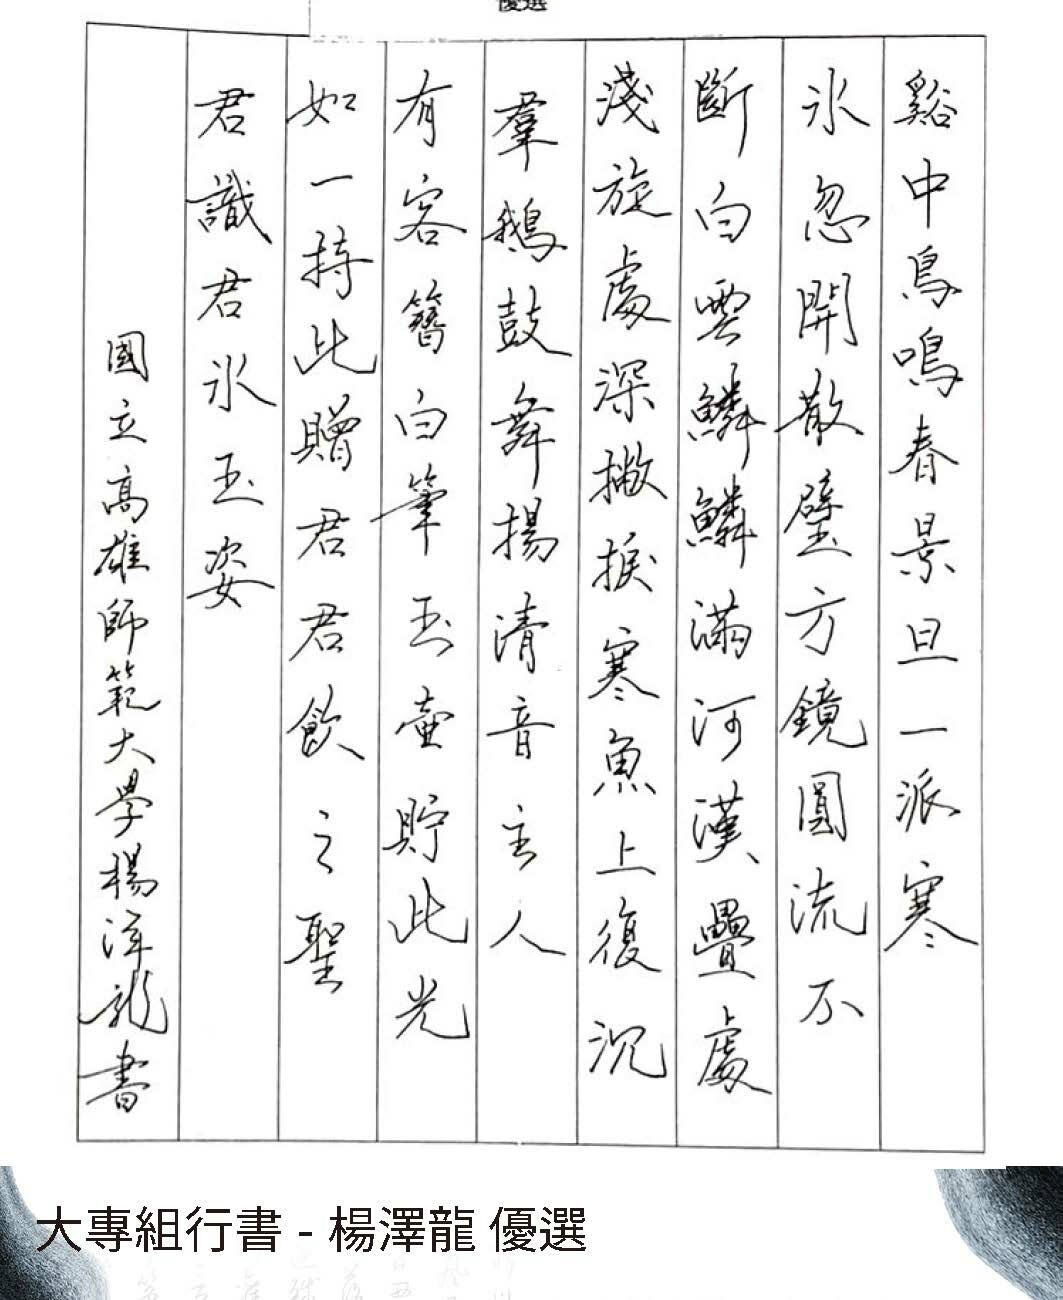 優選
谿中鳥鳴春景旦一派寒
氷忽開散璧方鏡圓流不
斷白雲鱗鱗滿河漢疊處
淺旋處深撇捩寒魚上復沉
羣鵝鼓舞揚清音主人
有客簪白筆玉壷貯此光
如一持此贈君君飲之聖
君識君氷玉姿
國立高雄師範大學楊澤龍書
大專組行書 - 楊澤龍 優選